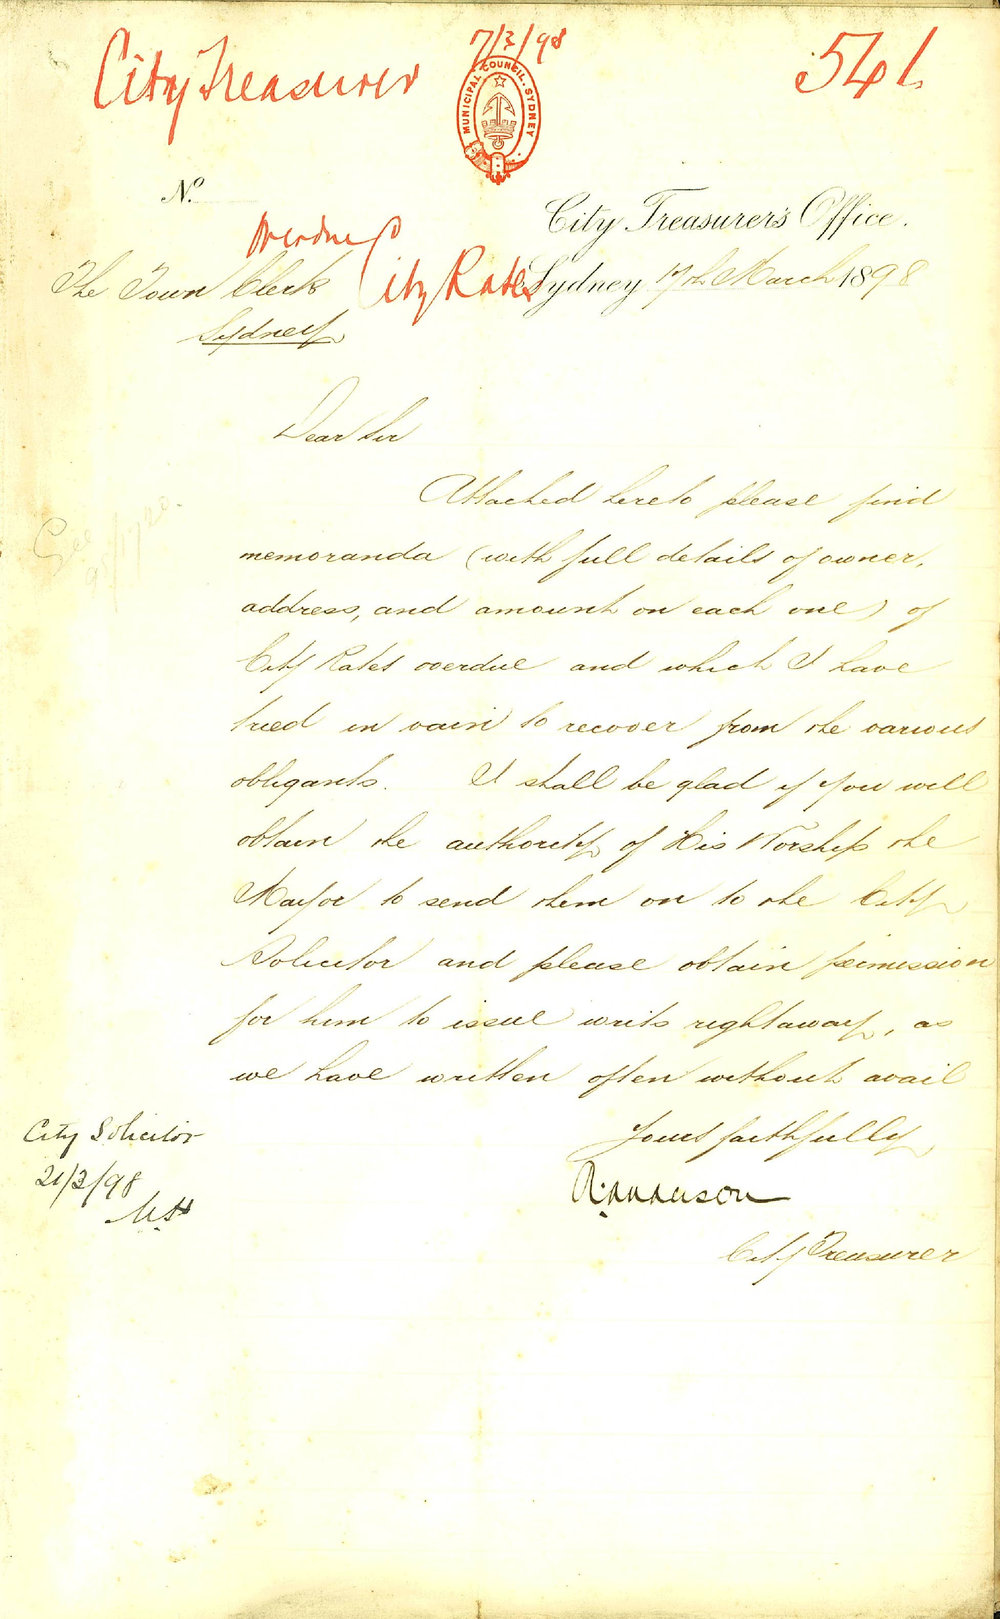 City Treasurer
7/3/98
541
MUNICIPAL COUNCIL. SYDNEY
No.
City Treasurer's Office.
Overdue
City Rates
The Town Clerk
Sydney 7th March 1898
Sydney
Dear Sir
Attached hereto please find
memoranda (with full details of owner,
address, and amount on each one) of
City Rates overdue and which I have
tried in vain to recover from the various
obligants. I shall be glad if you will
obtain the authority of His Worship the
Mayor to send them on to the City
Solicitor and please obtain permission
for him to issue writs rightaway, as
we have written often without avail
Yours faithfully
City Solicitor
21/3/98
City Treasurer